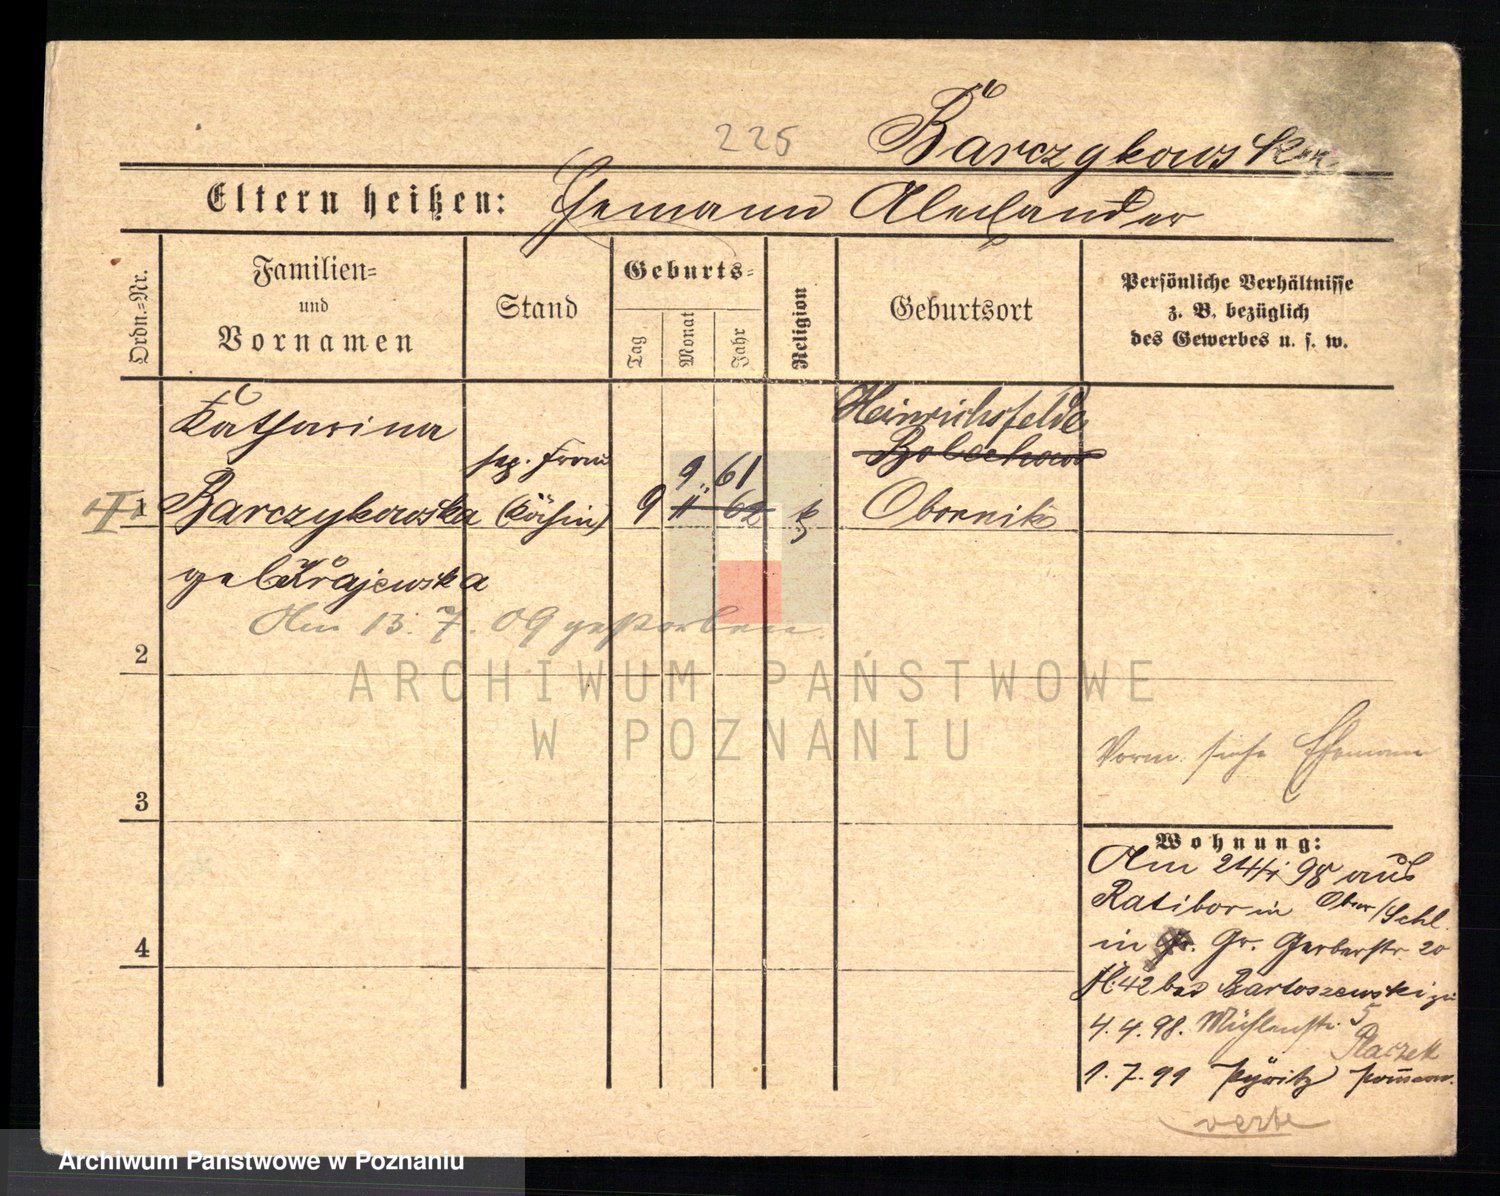 225 Barczykowska
Eltern heißen: Ehemann Alexander
Ordn.-Nr.
Familien- und Vornamen
Stand
Geburts-
Tag
Monat
Jahr
Religion
Geburtsort
Persönliche Verhältnisse
z. B. bezüglich
des Gewerbes u. s. w.
Katharina
Heinrichsfelde
sep. Frau
Bolechowo
9 61
1 Barczykowska (Köchin) 9 11 62 k Obornik
geb. Krajewska
Am 13. 7. 09 gestorben.
2
ARCHIWUM PAŃSTWOWE
W POZNANIU
Vorm. siehe Ehemann
3
Wohnung:
Am 24/1 98 aus
Ratibor in Ober/Schl.
in Gr. Gerberstr. 20
H. 42 bei Bartoszewski zu
4. 4. 98. Mühlenstr. 5
Placzek
1. 7. 99 Pyritz Pomm.
4
Archiwum Państwowe w Poznaniu